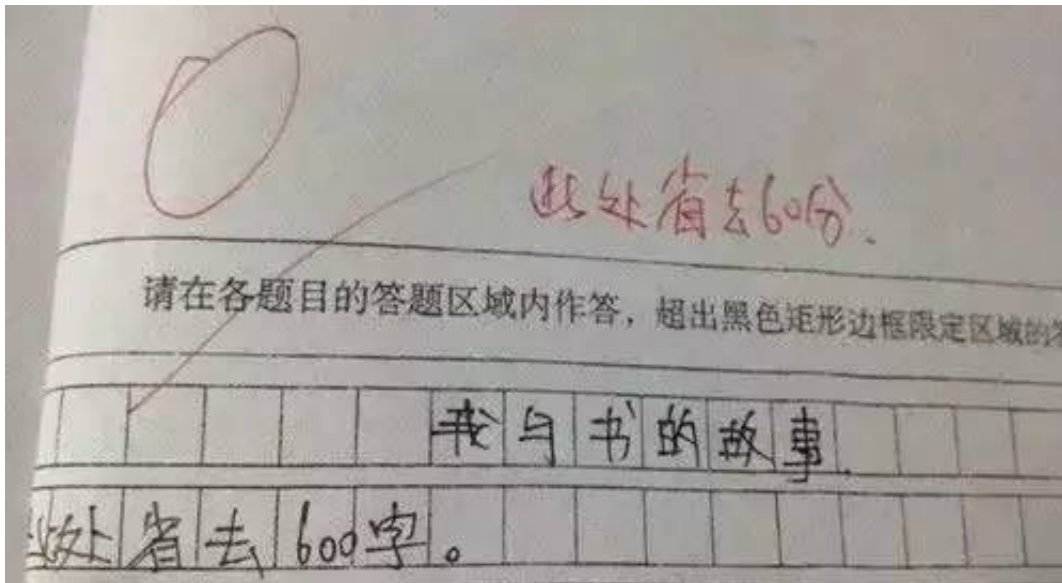 0
此处省去60分.
请在各题目的答题区域内作答，超出黑色矩形边框限定区域的
我与书的故事.
此处省去600字。